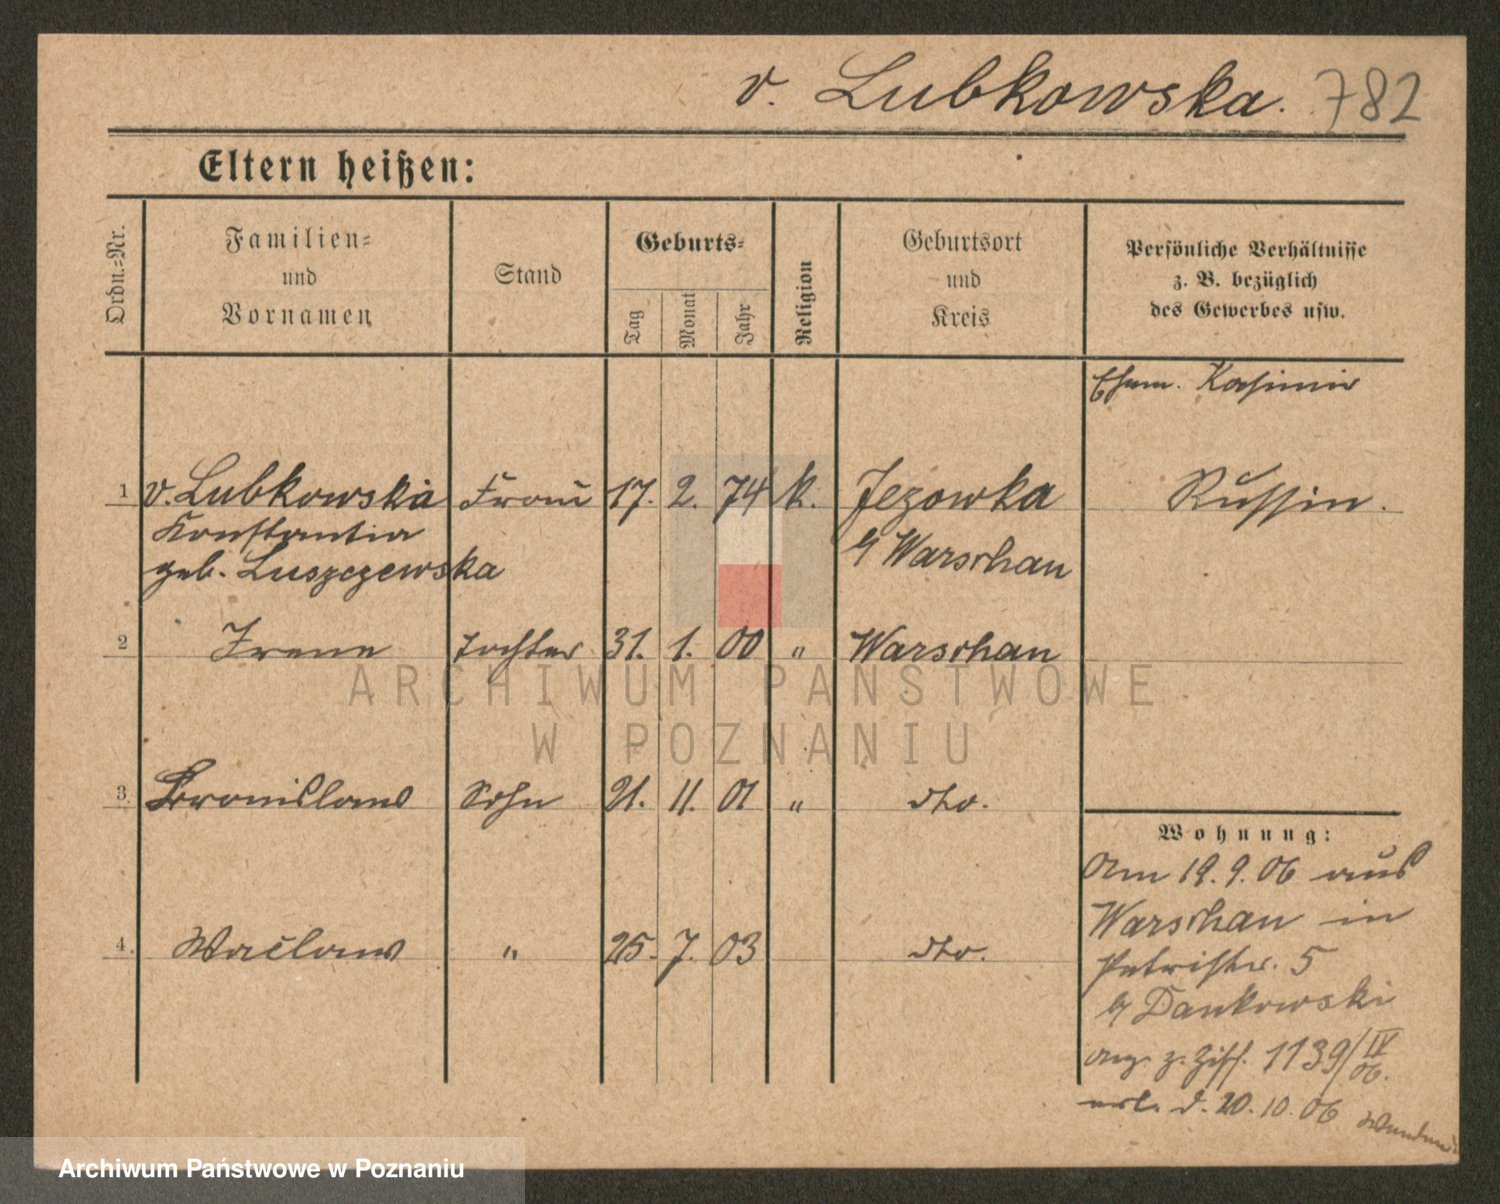 v. Lubkowska. 782
Eltern heißen:
Ordn.-Nr.
Familien-
und
Vornamen
Stand
Geburts-
Tag
Monat
Jahr
Religion
Geburtsort
und
Kreis
Persönliche Verhältnisse
z. B. bezüglich
des Gewerbes usw.
Ehem. Kasimir
1 v. Lubkowska Frau 17. 2. 74 k. Jezowka Russin.
Konstantia
geb. Luszczewska
b/ Warschau
2 Irene Tochter 31. 1. 00 " Warschau
3 Bronislaus Sohn 21. 11. 01 " dto.
4. Waclaus " 25. 7. 03 dto.
Wohnung:
Am 19.9.06 aus
Warschau in
Petristr. 5
b/ Dankowski
ang. z. Ziff. 1139/IV 06.
erl. d. 20.10.06
ARCHIWUM PAŃSTWOWE
W POZNANIU
Archiwum Państwowe w Poznaniu